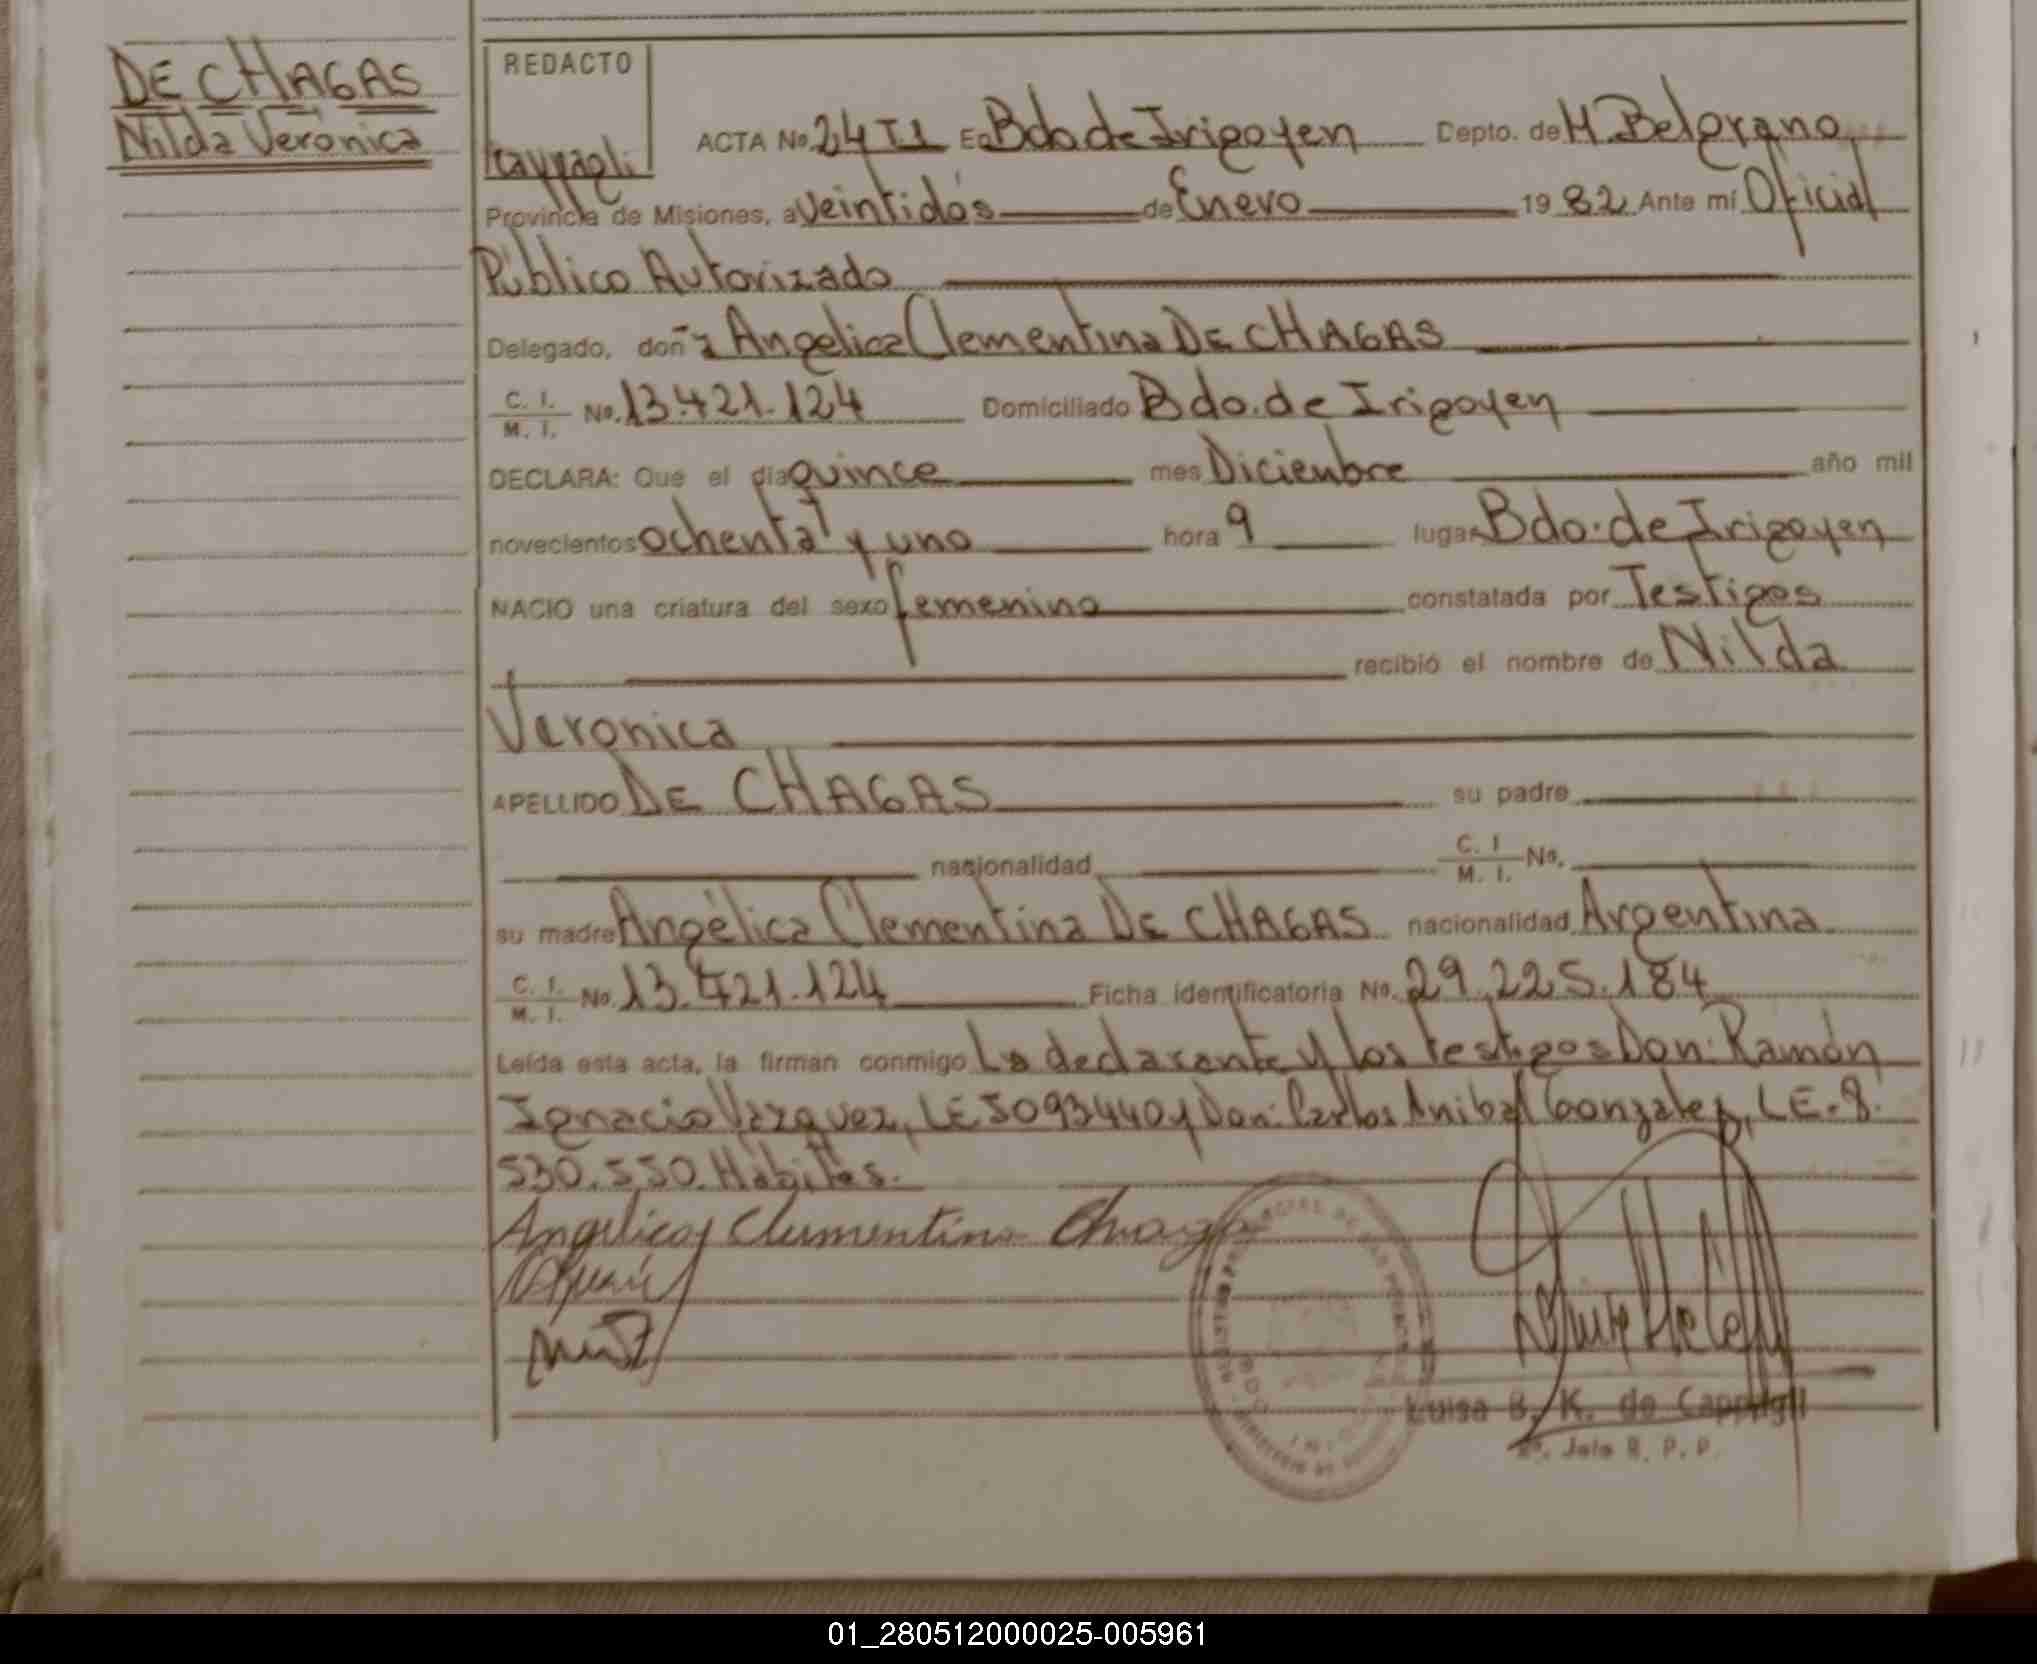 DE CHAGAS
Nilda Verónica
REDACTO
Cappagli
ACTA No. 24 T1 En Bdo de Irigoyen Depto. de M. Belgrano
Provincia de Misiones, a veintidós de Enero 1982 Ante mí Oficial
Público Autorizado
Delegado, doña Angélica Clementina DE CHAGAS
C. I.
M. I. No. 13.421.124 Domiciliado Bdo. de Irigoyen
DECLARA: Que el día quince mes Diciembre año mil
novecientos ochenta y uno hora 9 lugar Bdo. de Irigoyen
NACIO una criatura del sexo femenino constatada por Testigos
recibió el nombre de Nilda
Verónica
APELLIDO DE CHAGAS su padre
nacionalidad C. I. M. I. No.
su madre Angélica Clementina DE CHAGAS nacionalidad Argentina
C. I.
M. I. No. 13.421.124 Ficha identificatoria No. 29.225.184
Leída esta acta, la firman conmigo La declarante y los testigos Don: Ramón
Ignacio Vazquez, LE 5093440 y Don: Carlos Anibal Gonzalez, LE. 8.
530.550. Hábiles.
Angelica Clementina Chagas
Luisa B. K. de Cappagli
Jefe R. P. P.
01_280512000025-005961